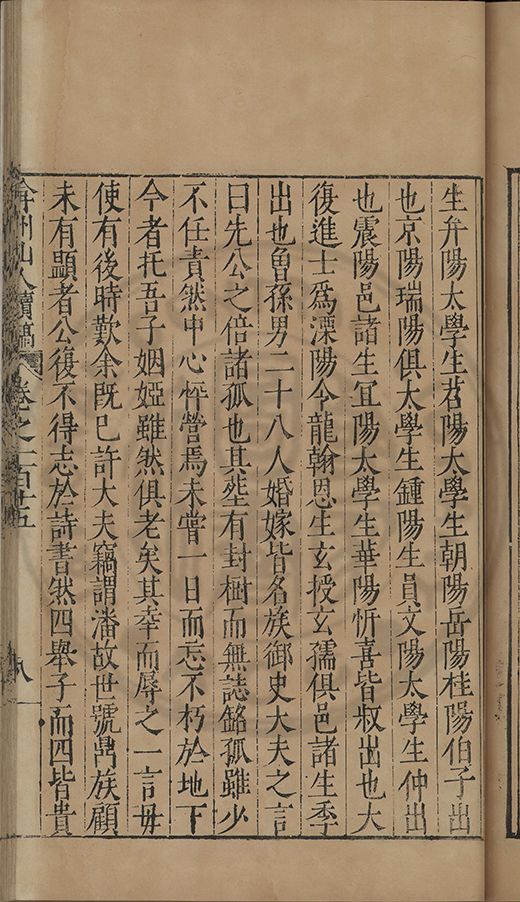 生弁陽太學生苕陽太學生朝陽岳陽桂陽伯子出
也京陽瑞陽俱太學生鍾陽生員文陽太學生仲出
也震陽邑諸生宜陽太學生華陽忻喜皆叔出也大
復進士為溧陽令龍翰恩生玄授玄孺俱邑諸生季
出也曾孫男二十八人婚嫁皆名族御史大夫之言
曰先公之倍諸孤也其塟有封樹而無誌銘孤雖少
不任責然中心怦營焉未嘗一日而忘不朽於地下
今者托吾子姻婭雖然俱老矣其幸而辱之一言毋
使有後時歎余既已許大夫竊謂潘故世號鼎族顧
未有顯者公復不得志於詩書然四舉子而四皆貴
弇州山人續稿 卷之一百廿五 八